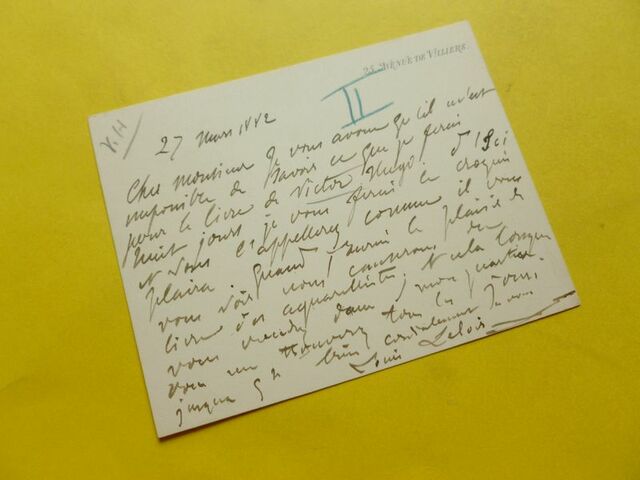 25, AVENUE DE VILLIERS.
V. H
II
27 Mars 1882
Cher monsieur Je vous avoue qu'il m'est
impossible de savoir ce que je ferai
pour le livre de Victor Hugo. d'Ici
huit jours je vous ferai le croquis
et vous l'appellerez comme il vous
plaira. Quand j'aurai le plaisir de
vous voir nous causerons du
livre des aquarellistes. Et cela lorsque
vous viendrez dans mon quartier
vous me trouverez tous les jours
jusqua 5 h bien cordialement
Louis Leloir